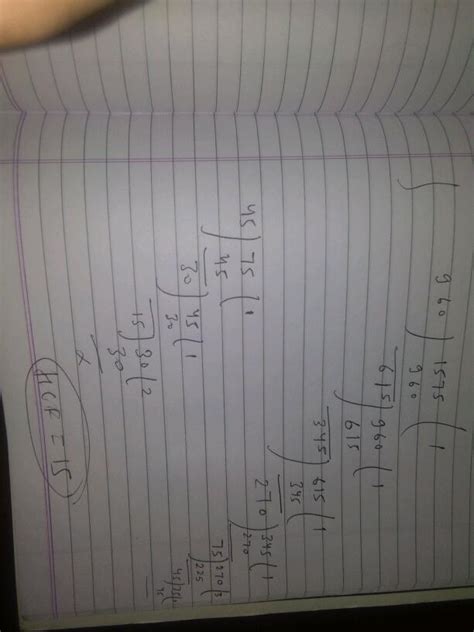 960 ) 1575 ( 1
960
615 ) 960 ( 1
615
345 ) 615 ( 1
345
270 ) 345 ( 1
270
75 ) 270 ( 3
225
45 ) 75 ( 1
45
30 ) 45 ( 1
30
15 ) 30 ( 2
30
x
HCF = 15